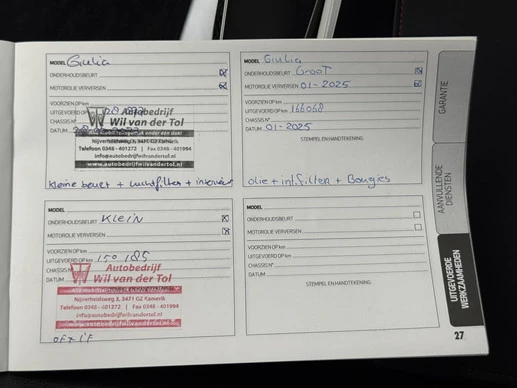 MODEL Giulia
ONDERHOUDSBEURT
MOTOROLIE VERVERSEN
VOORZIEN OP km
UITGEVOERD OP km
CHASSIS N°
DATUM
Autobedrijf
Wil van der Tol
Nijverheidsweg 3, 3471 GZ Kamerik
Telefoon 0348 - 401272 | Fax 0348 - 401994
info@autobedrijfwilvandertol.nl
www.autobedrijfwilvandertol.nl
kleine beurt + luchtfilter + interieur
MODEL Giulia
ONDERHOUDSBEURT Groot
MOTOROLIE VERVERSEN 01-2025
VOORZIEN OP km
UITGEVOERD OP km 166068
CHASSIS N°
DATUM 01-2025
STEMPEL EN HANDTEKENING
olie + int.filter + Bougies
MODEL
ONDERHOUDSBEURT Klein
MOTOROLIE VERVERSEN
VOORZIEN OP km
UITGEVOERD OP km 150185
CHASSIS N°
DATUM
Autobedrijf
Wil van der Tol
Nijverheidsweg 3, 3471 GZ Kamerik
Telefoon 0348 - 401272 | Fax 0348 - 401994
info@autobedrijfwilvandertol.nl
www.autobedrijfwilvandertol.nl
MODEL
ONDERHOUDSBEURT
MOTOROLIE VERVERSEN
VOORZIEN OP km
UITGEVOERD OP km
CHASSIS N°
DATUM
STEMPEL EN HANDTEKENING
GARANTIE
AANVULLENDE
DIENSTEN
UITGEVOERDE
WERKZAAMHEDEN
27